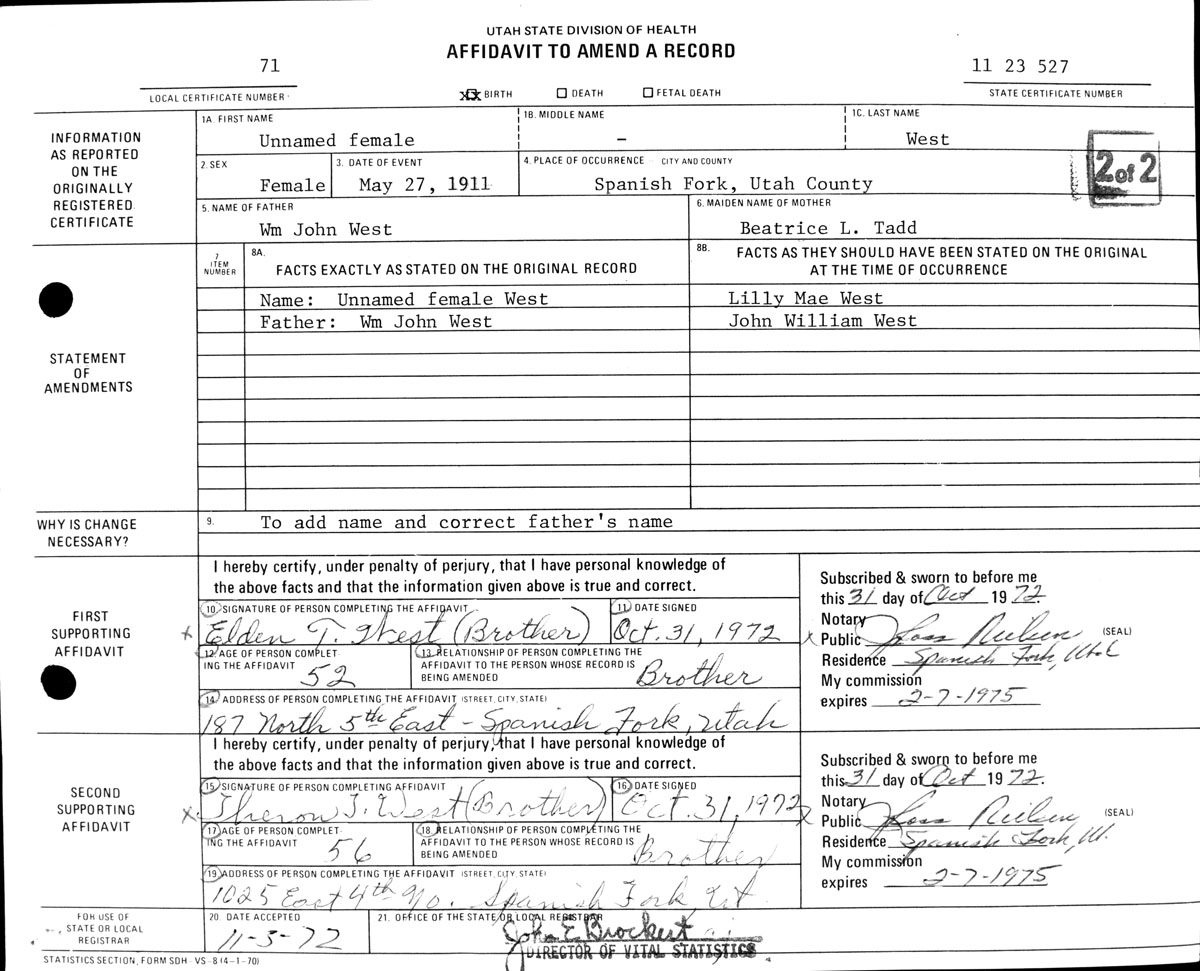 UTAH STATE DIVISION OF HEALTH
AFFIDAVIT TO AMEND A RECORD
71
11 23 527
LOCAL CERTIFICATE NUMBER
XX BIRTH ☐ DEATH ☐ FETAL DEATH
STATE CERTIFICATE NUMBER
INFORMATION
AS REPORTED
ON THE
ORIGINALLY
REGISTERED
CERTIFICATE
1A. FIRST NAME
1B. MIDDLE NAME
1C. LAST NAME
Unnamed female
–
West
2. SEX
3. DATE OF EVENT
4. PLACE OF OCCURRENCE CITY AND COUNTY
Female
May 27, 1911
Spanish Fork, Utah County
2 of 2
5. NAME OF FATHER
6. MAIDEN NAME OF MOTHER
Wm John West
Beatrice L. Tadd
STATEMENT
OF
AMENDMENTS
7
ITEM
NUMBER
8A.
FACTS EXACTLY AS STATED ON THE ORIGINAL RECORD
8B.
FACTS AS THEY SHOULD HAVE BEEN STATED ON THE ORIGINAL
AT THE TIME OF OCCURRENCE
Name: Unnamed female West
Lilly Mae West
Father: Wm John West
John William West
WHY IS CHANGE
NECESSARY?
9.
To add name and correct father's name
FIRST
SUPPORTING
AFFIDAVIT
I hereby certify, under penalty of perjury, that I have personal knowledge of
the above facts and that the information given above is true and correct.
10 SIGNATURE OF PERSON COMPLETING THE AFFIDAVIT
11 DATE SIGNED
x Elden T. West (Brother)
Oct. 31, 1972
12 AGE OF PERSON COMPLET
ING THE AFFIDAVIT
52
13. RELATIONSHIP OF PERSON COMPLETING THE
AFFIDAVIT TO THE PERSON WHOSE RECORD IS
BEING AMENDED
Brother
14 ADDRESS OF PERSON COMPLETING THE AFFIDAVIT (STREET, CITY, STATE)
187 North 5th East - Spanish Fork, Utah
Subscribed & sworn to before me
this 31 day of Oct 19 72.
Notary
x Public Ross Nielsen (SEAL)
Residence Spanish Fork, Utah
My commission
expires 2-7-1975
SECOND
SUPPORTING
AFFIDAVIT
I hereby certify, under penalty of perjury, that I have personal knowledge of
the above facts and that the information given above is true and correct.
15 SIGNATURE OF PERSON COMPLETING THE AFFIDAVIT
16 DATE SIGNED
x Theron T. West (Brother)
Oct. 31, 1972
17 AGE OF PERSON COMPLET
ING THE AFFIDAVIT
56
18. RELATIONSHIP OF PERSON COMPLETING THE
AFFIDAVIT TO THE PERSON WHOSE RECORD IS
BEING AMENDED
Brother
19 ADDRESS OF PERSON COMPLETING THE AFFIDAVIT (STREET, CITY, STATE)
1025 East 4th No. Spanish Fork Ut
Subscribed & sworn to before me
this 31 day of Oct 19 72.
Notary
x Public Ross Nielsen (SEAL)
Residence Spanish Fork, Ut.
My commission
expires 2-7-1975
FOR USE OF
STATE OR LOCAL
REGISTRAR
20. DATE ACCEPTED
11-3-72
21. OFFICE OF THE STATE OR LOCAL REGISTRAR
John E Brockert
DIRECTOR OF VITAL STATISTICS
STATISTICS SECTION, FORM SDH - VS - 8 (4-1-70)